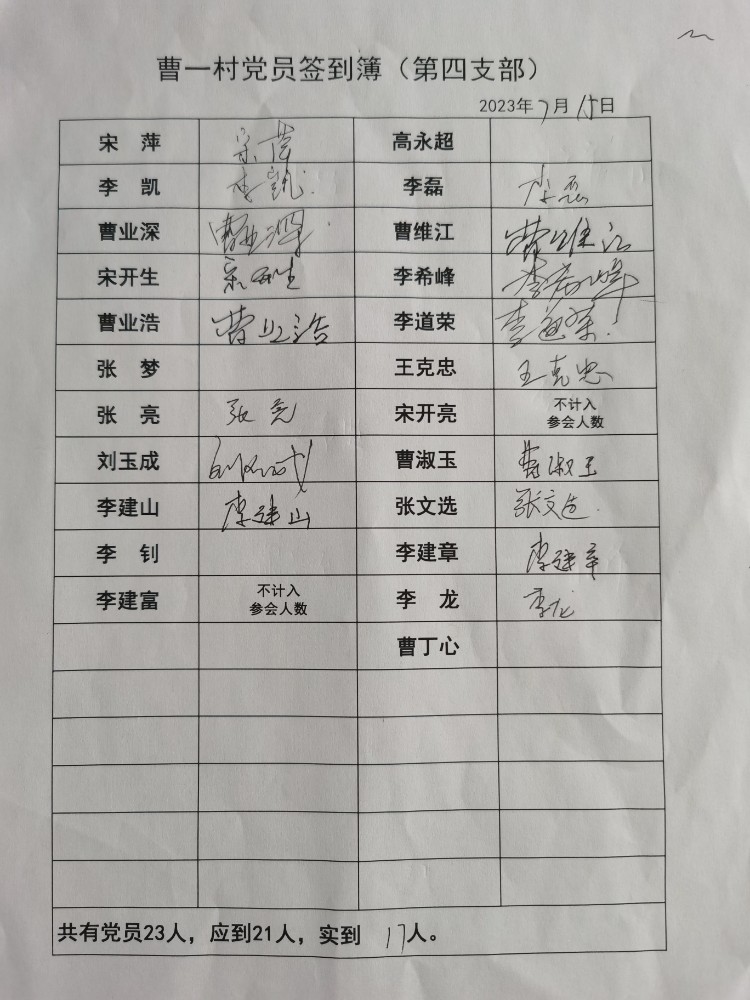 曹一村党员签到簿（第四支部）
2023年7月15日
宋 萍 宋萍 高永超
李 凯 李凯 李磊 李磊
曹业深 曹业深 曹维江 曹维江
宋开生 宋开生 李希峰 李希峰
曹业浩 曹业浩 李道荣 李道荣
张 梦 王克忠 王克忠
张 亮 张亮 宋开亮 不计入
参会人数
刘玉成 刘玉成 曹淑玉 曹淑玉
李建山 李建山 张文选 张文选
李 钊 李建章 李建章
李建富 不计入 李 龙 李龙
参会人数
曹丁心
共有党员23人，应到21人，实到 17人。